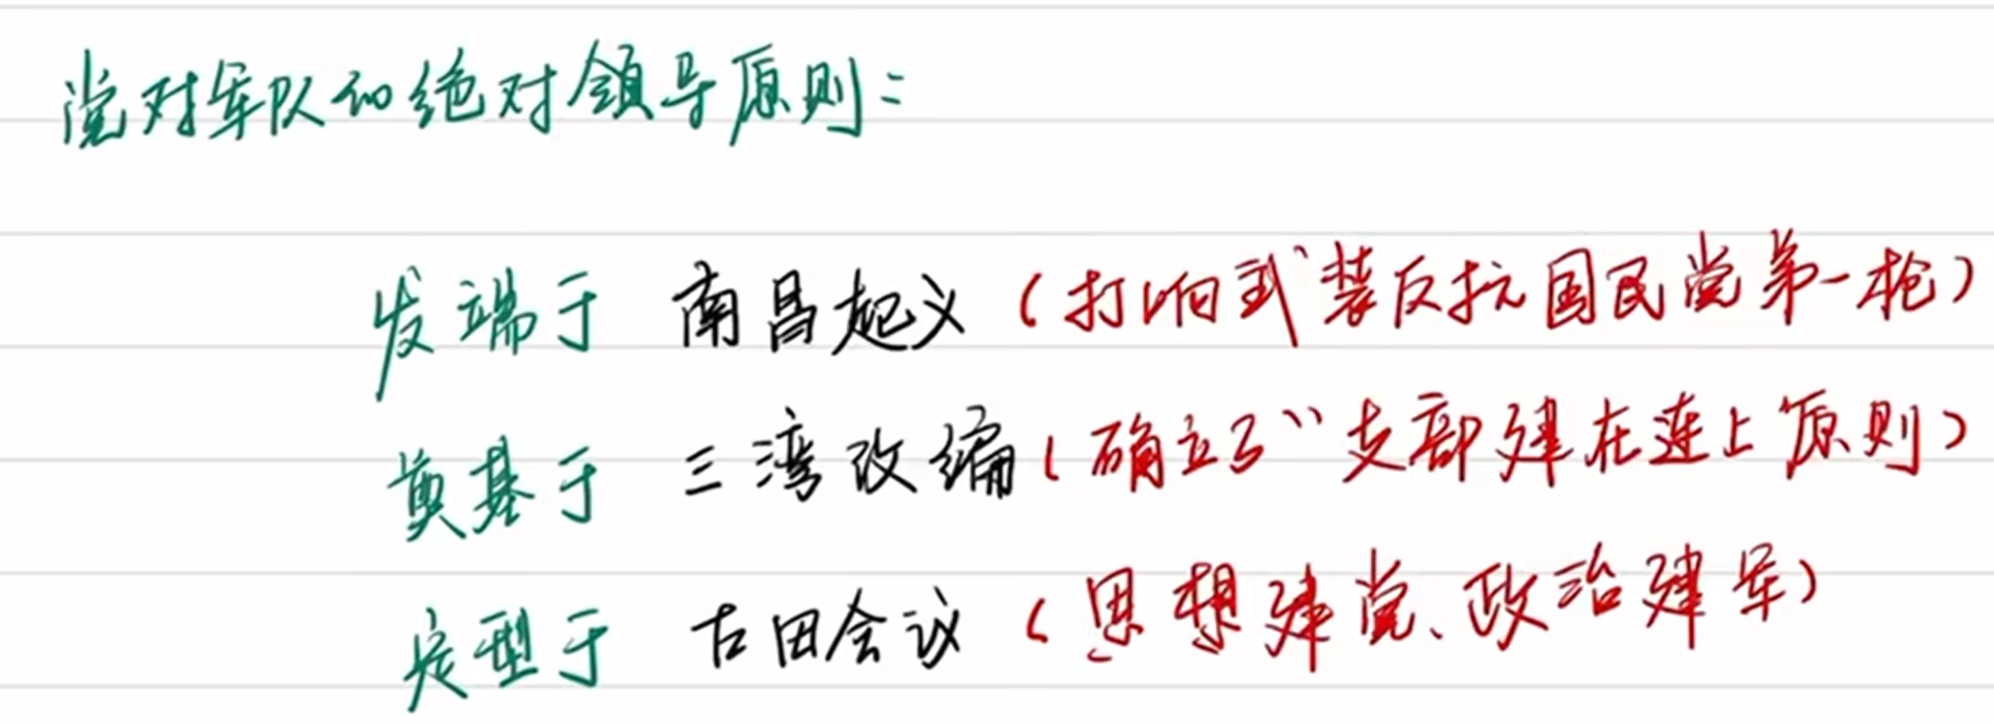 党对军队的绝对领导原则：
发端于 南昌起义（打响武装反抗国民党第一枪）
奠基于 三湾改编（确立了"支部建在连上"原则）
定型于 古田会议（思想建党、政治建军）